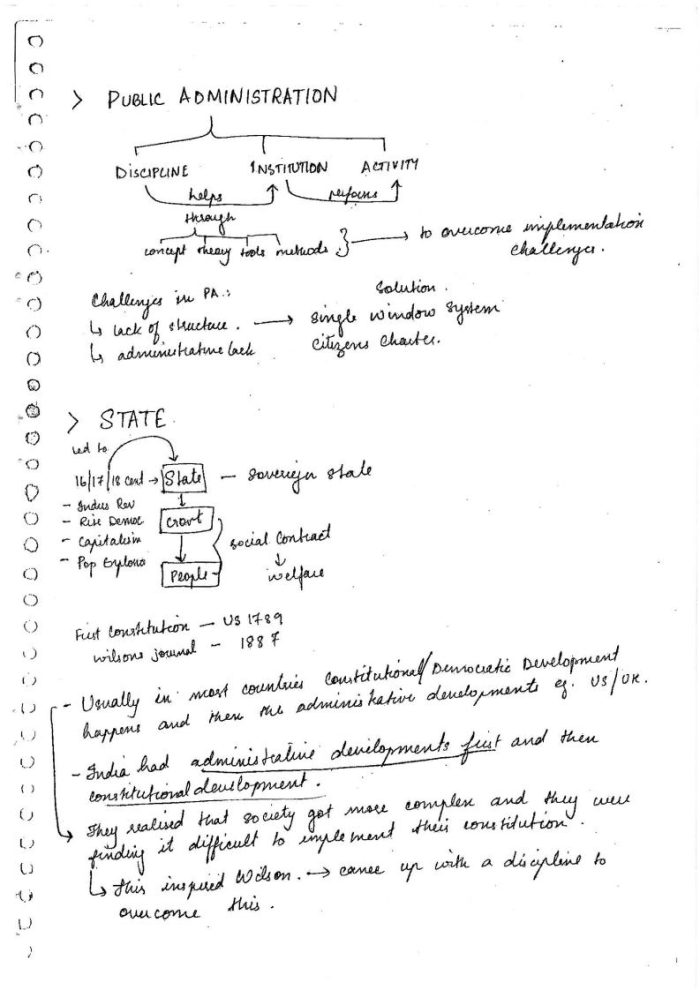 > PUBLIC ADMINISTRATION
DISCIPLINE INSTITUTION ACTIVITY
helps performs
through
concept theory tools methods } → to overcome implementation
challenges.
Challenges in PA: Solution.
↳ lack of structure. → Single window System
↳ administrative lack Citizens Charter.
> STATE
Led to
16/17/18 cent → State — Sovereign State
- Indus Rev
- Rise Democ Govt
- Capitalism social Contract
- Pop Explons People ↓
welfare
First Constitution — US 1789
Wilsons journal — 1887
- Usually in most countries Constitutional/Democratic Development
happens and then the administrative developments eg. US/UK.
- India had administrative developments first and then
constitutional development.
→ They realised that society got more complex and they were
finding it difficult to implement their constitution.
↳ this inspired Wilson. → came up with a discipline to
overcome this.